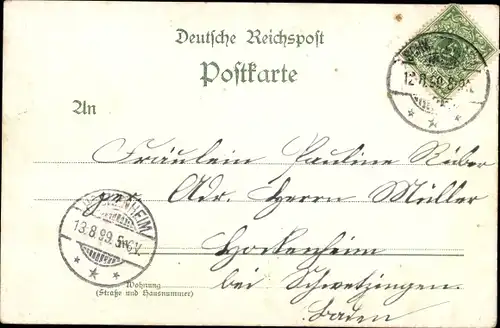 Deutsche Reichspost
Postkarte
An
Fräulein Pauline
Adr. Herrn Müller
Hockenheim
bei Schwetzingen.
Baden
Wohnung
(Straße und Hausnummer)
12.8.99.8-9N.
HOCKENHEIM
13.8.99.5-6V.